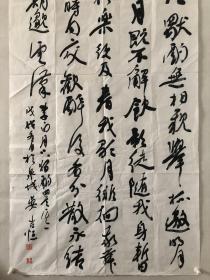 獨酌無相親舉杯邀明月
月既不解飲影徒隨我身暫
行樂須及春我歌月徘徊我舞
時同交歡醉後各分散永結
期邈雲漢 李白月下獨酌
戊戌